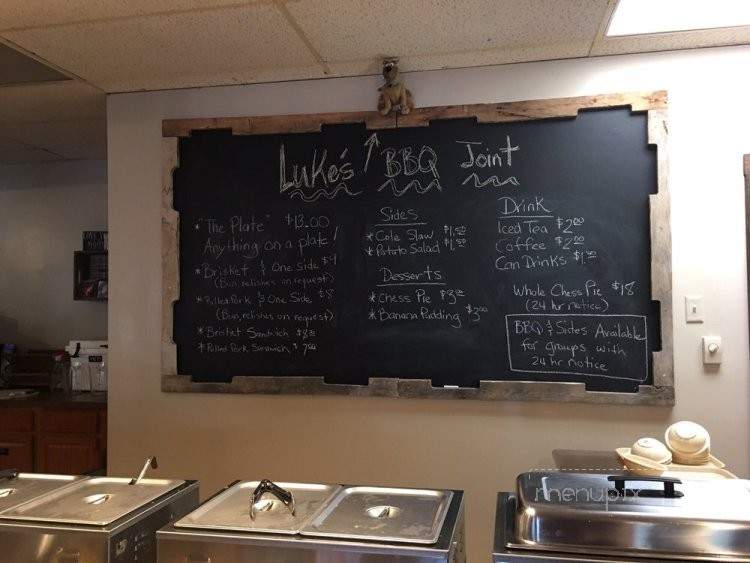 Luke's BBQ Joint
* "The Plate" $13.00
Anything on a plate!
* Brisket & One Side $9
(Bun, relishes on request)
* Pulled Pork & One Side $8
(Bun, relishes on request)
* Brisket Sandwich $8.00
* Pulled Pork Sandwich $7.00
Sides
* Cole Slaw $1.50
* Potato Salad $1.50
Desserts
* Chess Pie $3.00
* Banana Pudding $3.00
Drink
Iced Tea $2.00
Coffee $2.00
Can Drinks $1.00
Whole Chess Pie $18
(24 hr notice)
BBQ & Sides Available
for groups with
24 hr notice
menupix